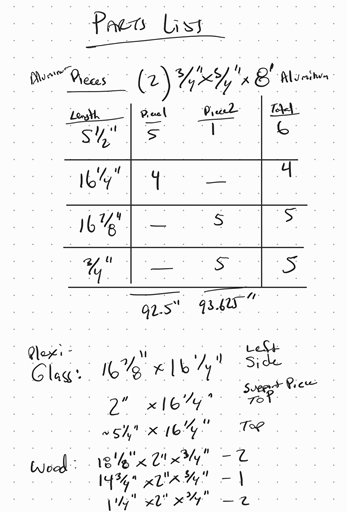 PARTS LIST
Aluminum Pieces (2) 3/4" x 3/4" x 8' Aluminum
Length Piece1 Piece2 Total
5 1/2" 5 1 6
16 1/4" 4 — 4
16 7/8" — 5 5
3/4" — 5 5
92.5" 93.625"
Plexi-
Glass: 16 7/8" x 16 1/4" Left Side
2" x 16 1/4" Support Piece TOP
~5 1/4" x 16 1/4" Top
Wood: 18 1/8" x 2" x 3/4" - 2
14 3/4" x 2" x 3/4" - 1
1 1/4" x 2" x 3/4" - 2